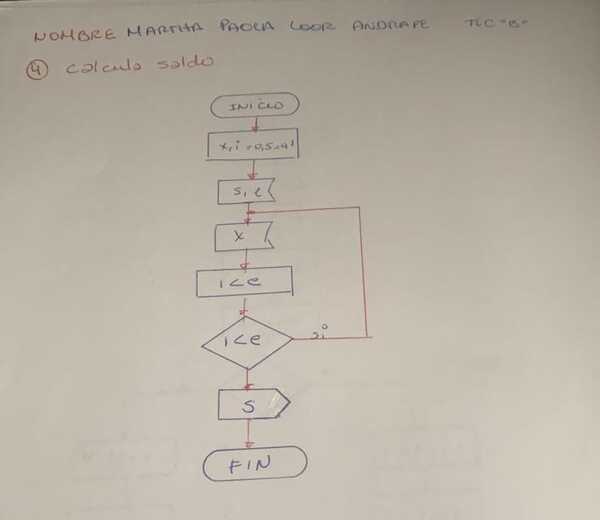 NOMBRE MARTHA PAOLA LOOR ANDRADE TLC "B"
4 Calculo saldo
INICIO
S, e
X
i < e
i < e
si
S
FIN